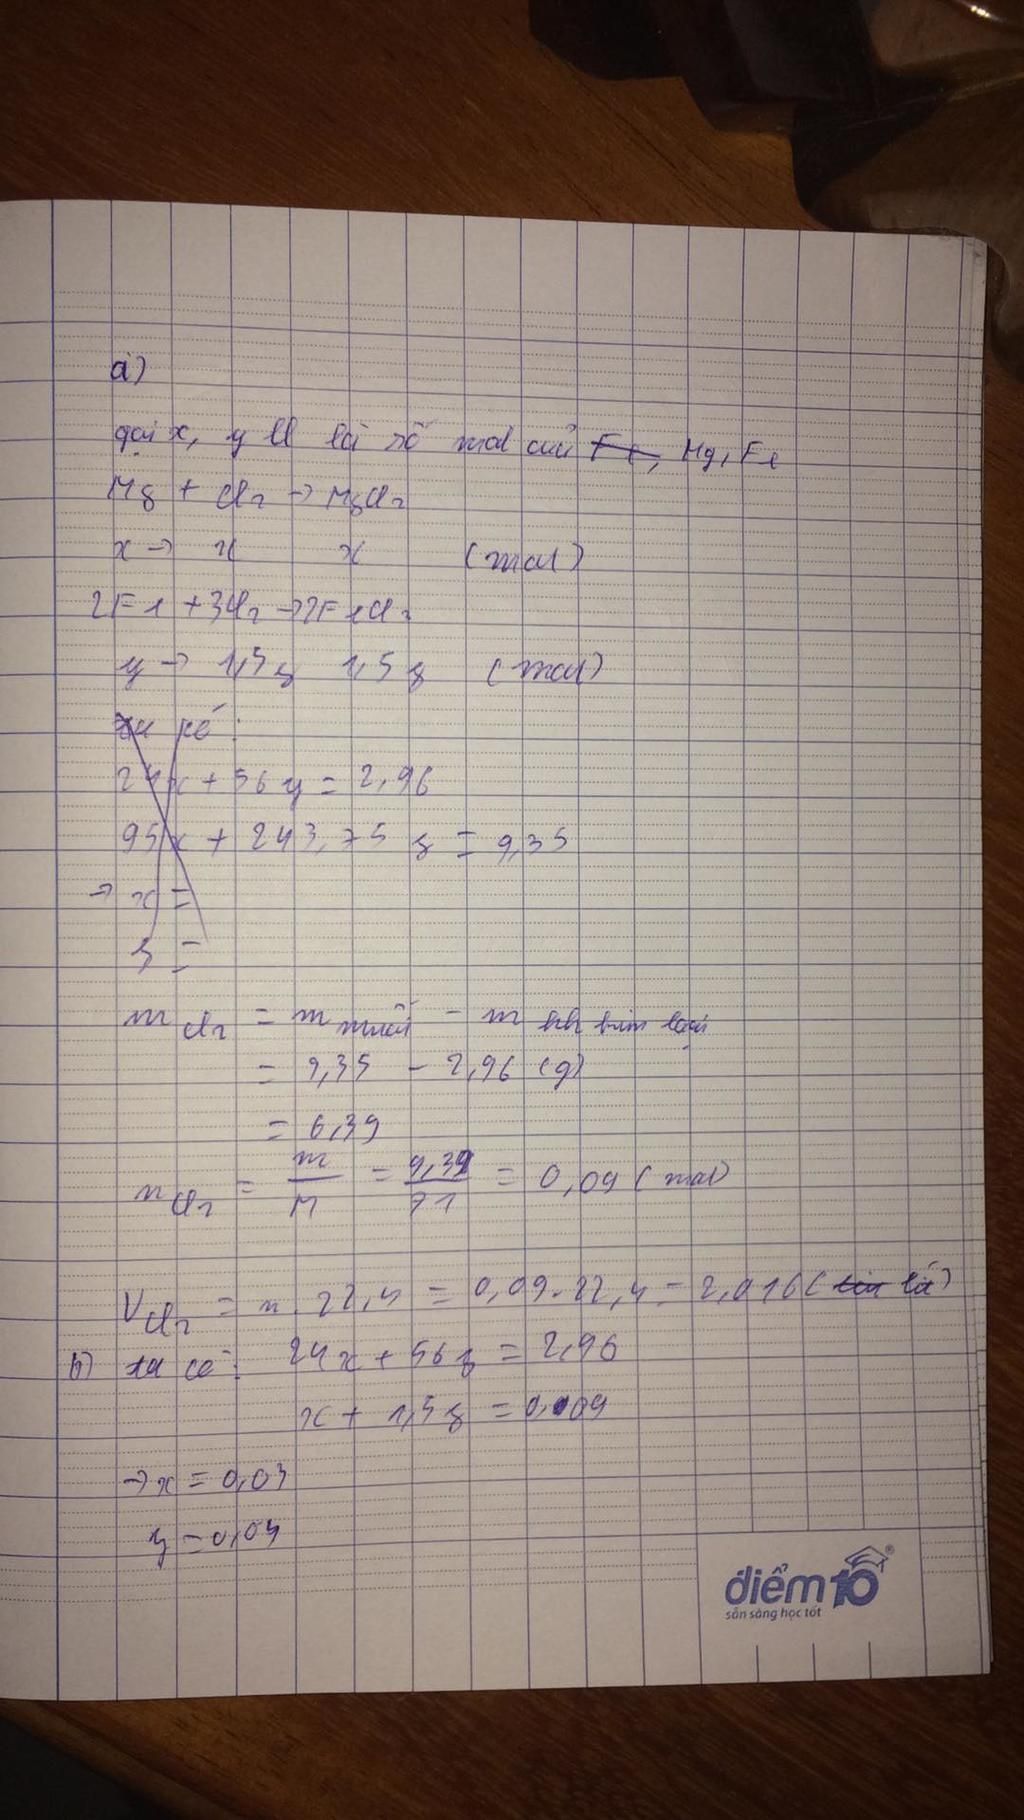 a)
gọi x, y ll là số mol của Fe, Mg, Fe
Mg + Cl2 → MgCl2
x → x x (mol)
2Fe + 3Cl2 → 2FeCl3
y → 1,5y 1,5y (mol)
ta có:
24x + 56y = 2,96
95x + 243,75 y = 9,35
→ x =
y =
m Cl2 = m muối - m hh kim loại
= 9,35 - 2,96 (g)
= 6,39
n Cl2 = m/M = 9,39/71 = 0,09 (mol)
V Cl2 = n. 22,4 = 0,09.22,4 = 2,016 (lít)
b) ta có: 24x + 56y = 2,96
x + 1,5y = 0,09
→ x = 0,03
y = 0,04
điểm10®
sẵn sàng học tốt